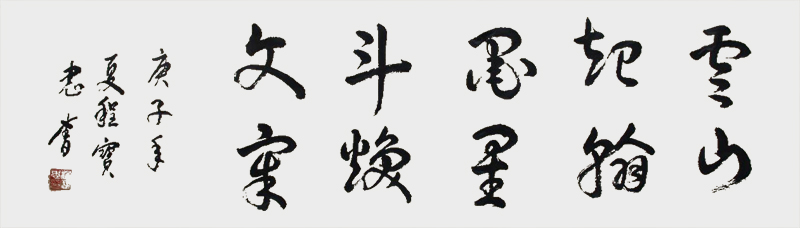 雲山
起翰
墨星
斗焕
文章
庚子年
夏程寶
忠書